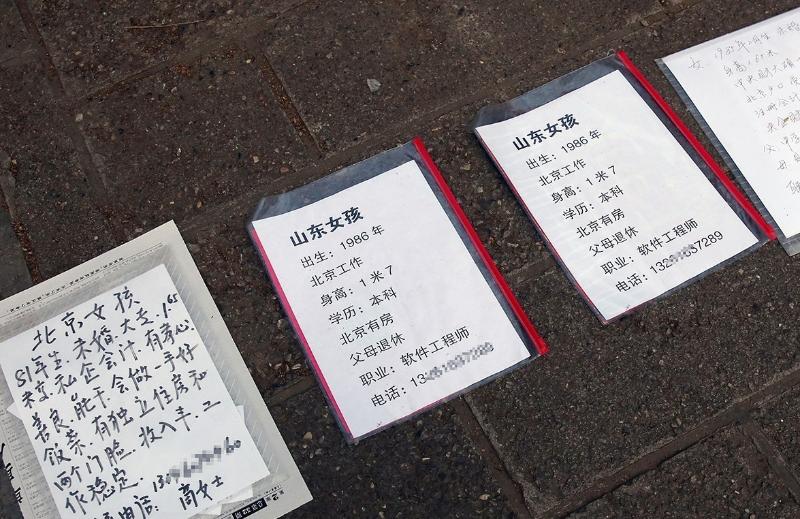 北京女孩
81年生.未婚.大专.165
私企会计.有
善良.能干.会做一手好
饭菜.有独立住房和
两个门脸.收入丰.工
作稳定.
电话:13
高女士
山东女孩
出生：1986 年
北京工作
身高：1 米 7
学历：本科
北京有房
父母退休
职业：软件工程师
电话：13
山东女孩
出生：1986 年
北京工作
身高：1 米 7
学历：本科
北京有房
父母退休
职业：软件工程师
电话：13 7289
女,
身高
中央财大硕
北京户口
注册会计
父
母